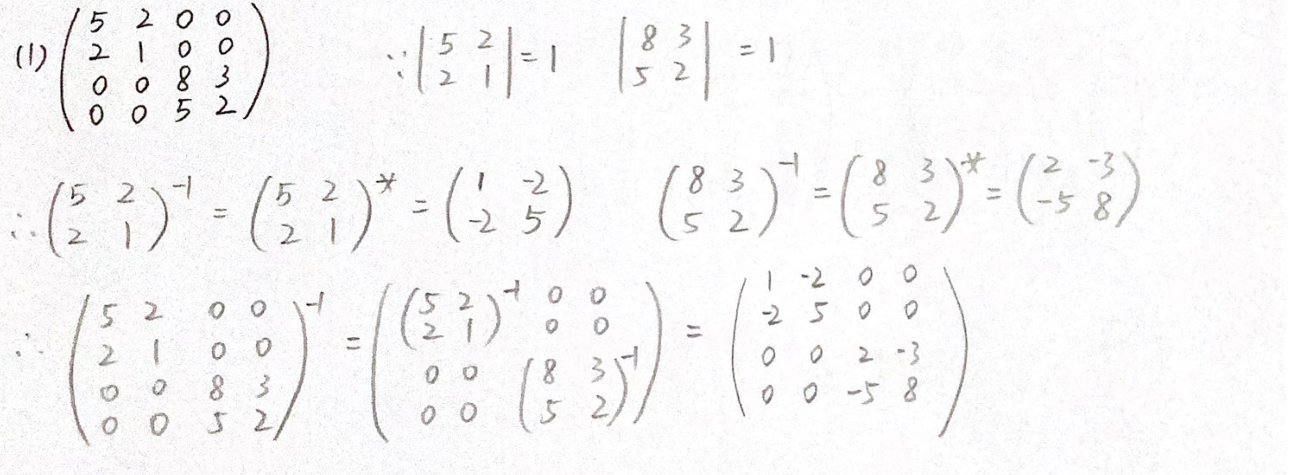 (1) $\begin{pmatrix} 5 & 2 & 0 & 0 \\ 2 & 1 & 0 & 0 \\ 0 & 0 & 8 & 3 \\ 0 & 0 & 5 & 2 \end{pmatrix}$ $\because \begin{vmatrix} 5 & 2 \\ 2 & 1 \end{vmatrix} = 1$ $\begin{vmatrix} 8 & 3 \\ 5 & 2 \end{vmatrix} = 1$
$\therefore \begin{pmatrix} 5 & 2 \\ 2 & 1 \end{pmatrix}^{-1} = \begin{pmatrix} 5 & 2 \\ 2 & 1 \end{pmatrix}^{*} = \begin{pmatrix} 1 & -2 \\ -2 & 5 \end{pmatrix}$ $\begin{pmatrix} 8 & 3 \\ 5 & 2 \end{pmatrix}^{-1} = \begin{pmatrix} 8 & 3 \\ 5 & 2 \end{pmatrix}^{*} = \begin{pmatrix} 2 & -3 \\ -5 & 8 \end{pmatrix}$
$\therefore \begin{pmatrix} 5 & 2 & 0 & 0 \\ 2 & 1 & 0 & 0 \\ 0 & 0 & 8 & 3 \\ 0 & 0 & 5 & 2 \end{pmatrix}^{-1} = \begin{pmatrix} \begin{pmatrix} 5 & 2 \\ 2 & 1 \end{pmatrix}^{-1} & \begin{matrix} 0 & 0 \\ 0 & 0 \end{matrix} \\ \begin{matrix} 0 & 0 \\ 0 & 0 \end{matrix} & \begin{pmatrix} 8 & 3 \\ 5 & 2 \end{pmatrix}^{-1} \end{pmatrix} = \begin{pmatrix} 1 & -2 & 0 & 0 \\ -2 & 5 & 0 & 0 \\ 0 & 0 & 2 & -3 \\ 0 & 0 & -5 & 8 \end{pmatrix}$